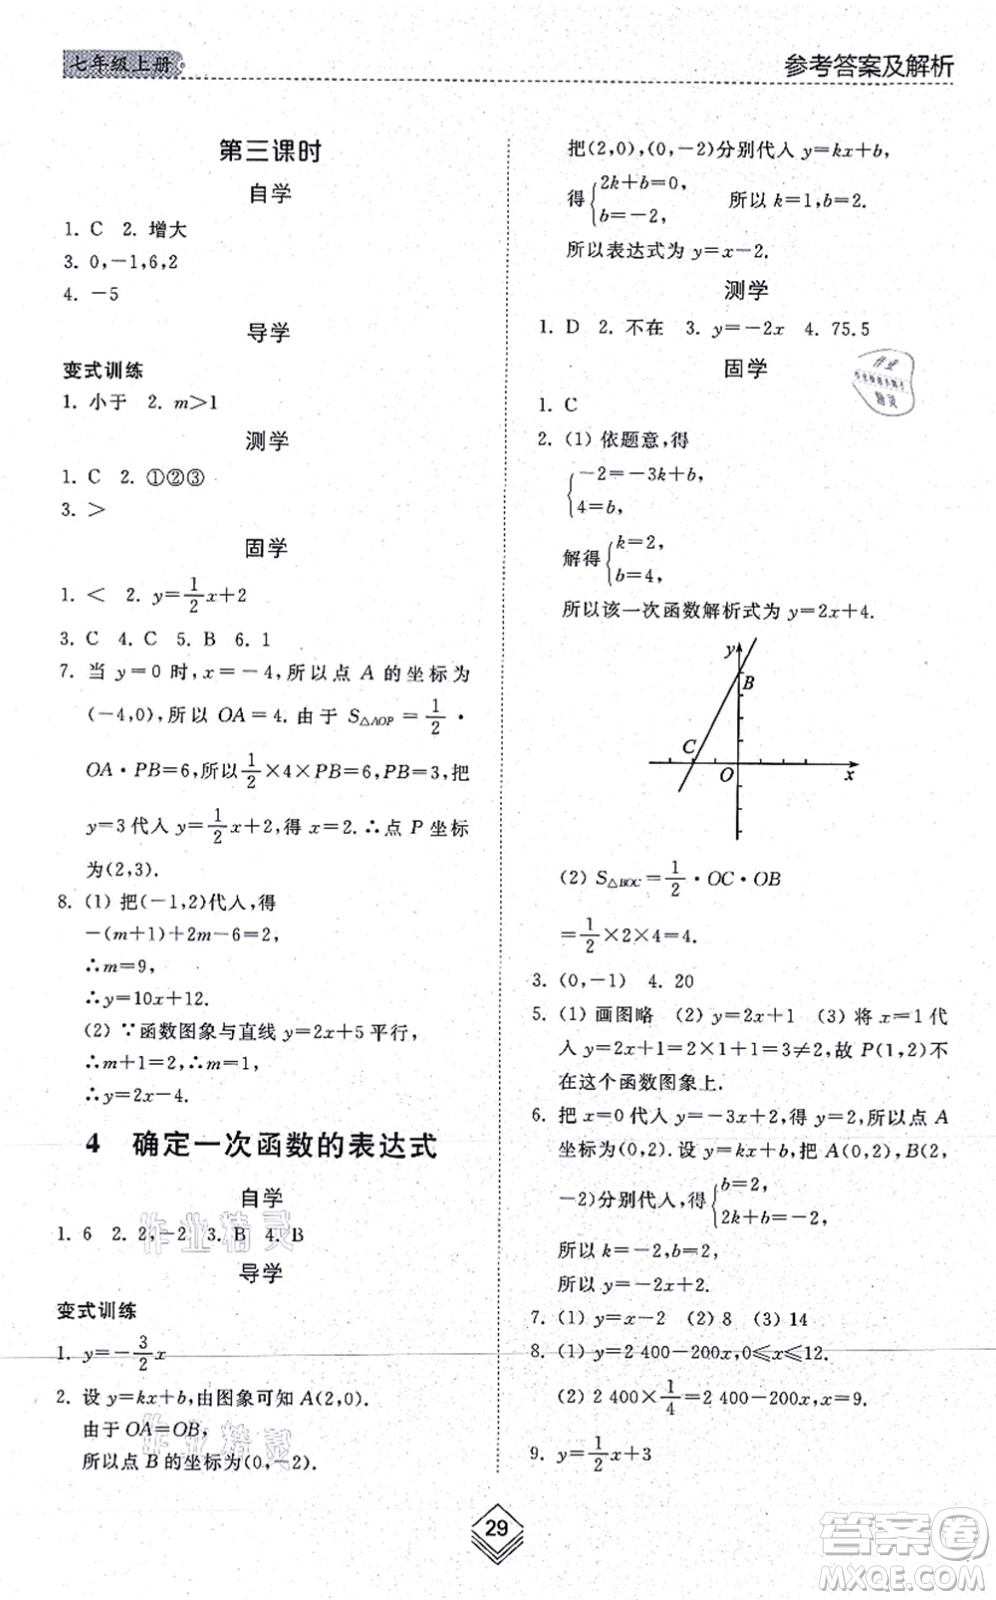 七年级上册
参考答案及解析
第三课时
自学
1. C 2. 增大
3. 0,-1,6,2
4. -5
导学
变式训练
1. 小于 2. m>1
测学
1. C 2. ①②③
3. >
固学
1. < 2. y=1/2x+2
3. C 4. C 5. B 6. 1
7. 当 y=0 时,x=-4,所以点 A 的坐标为
(-4,0),所以 OA=4. 由于 S△AOP=1/2·
OA·PB=6,所以1/2×4×PB=6,PB=3,把
y=3代入 y=1/2x+2,得 x=2.∴点 P 坐标
为(2,3).
8. (1) 把(-1,2)代人,得
-(m+1)+2m-6=2,
∴m=9,
∴y=10x+12.
(2) ∵函数图象与直线 y=2x+5平行,
∴m+1=2,∴m=1,
∴y=2x-4.
4 确定一次函数的表达式
自学
1. 6 2. 2,-2 3. B 4. B
导学
变式训练
1. y=-3/2x
2. 设 y=kx+b,由图象可知 A(2,0).
由于 OA=OB,
所以点 B 的坐标为(0,-2).
把(2,0),(0,-2)分别代人 y=kx+b,
得{2k+b=0, b=-2, 所以 k=1,b=2.
所以表达式为 y=x-2.
测学
1. D 2. 不在 3. y=-2x 4. 75.5
固学
1. C
2. (1) 依题意,得
{-2=-3k+b, 4=b,
解得{k=2, b=4,
所以该一次函数解析式为 y=2x+4.
y
B
C
O
x
(2) S△BOC=1/2·OC·OB
=1/2×2×4=4.
3. (0,-1) 4. 20
5. (1) 画图略 (2) y=2x+1 (3) 将 x=1代
人 y=2x+1=2×1+1=3≠2,故 P(1,2)不
在这个函数图象上.
6. 把 x=0代人 y=-3x+2,得 y=2,所以点 A
坐标为(0,2). 设 y=kx+b, 把 A(0,2),B(2,
-2)分别代人,得{b=2, 2k+b=-2,
所以 k=-2,b=2,
所以 y=-2x+2.
7. (1) y=x-2 (2) 8 (3) 14
8. (1) y=2 400-200x,0≤x≤12.
(2) 2 400×1/4=2 400-200x,x=9.
9. y=1/2x+3
29
作业精灵
作业精灵
答案卷
MXQE.COM